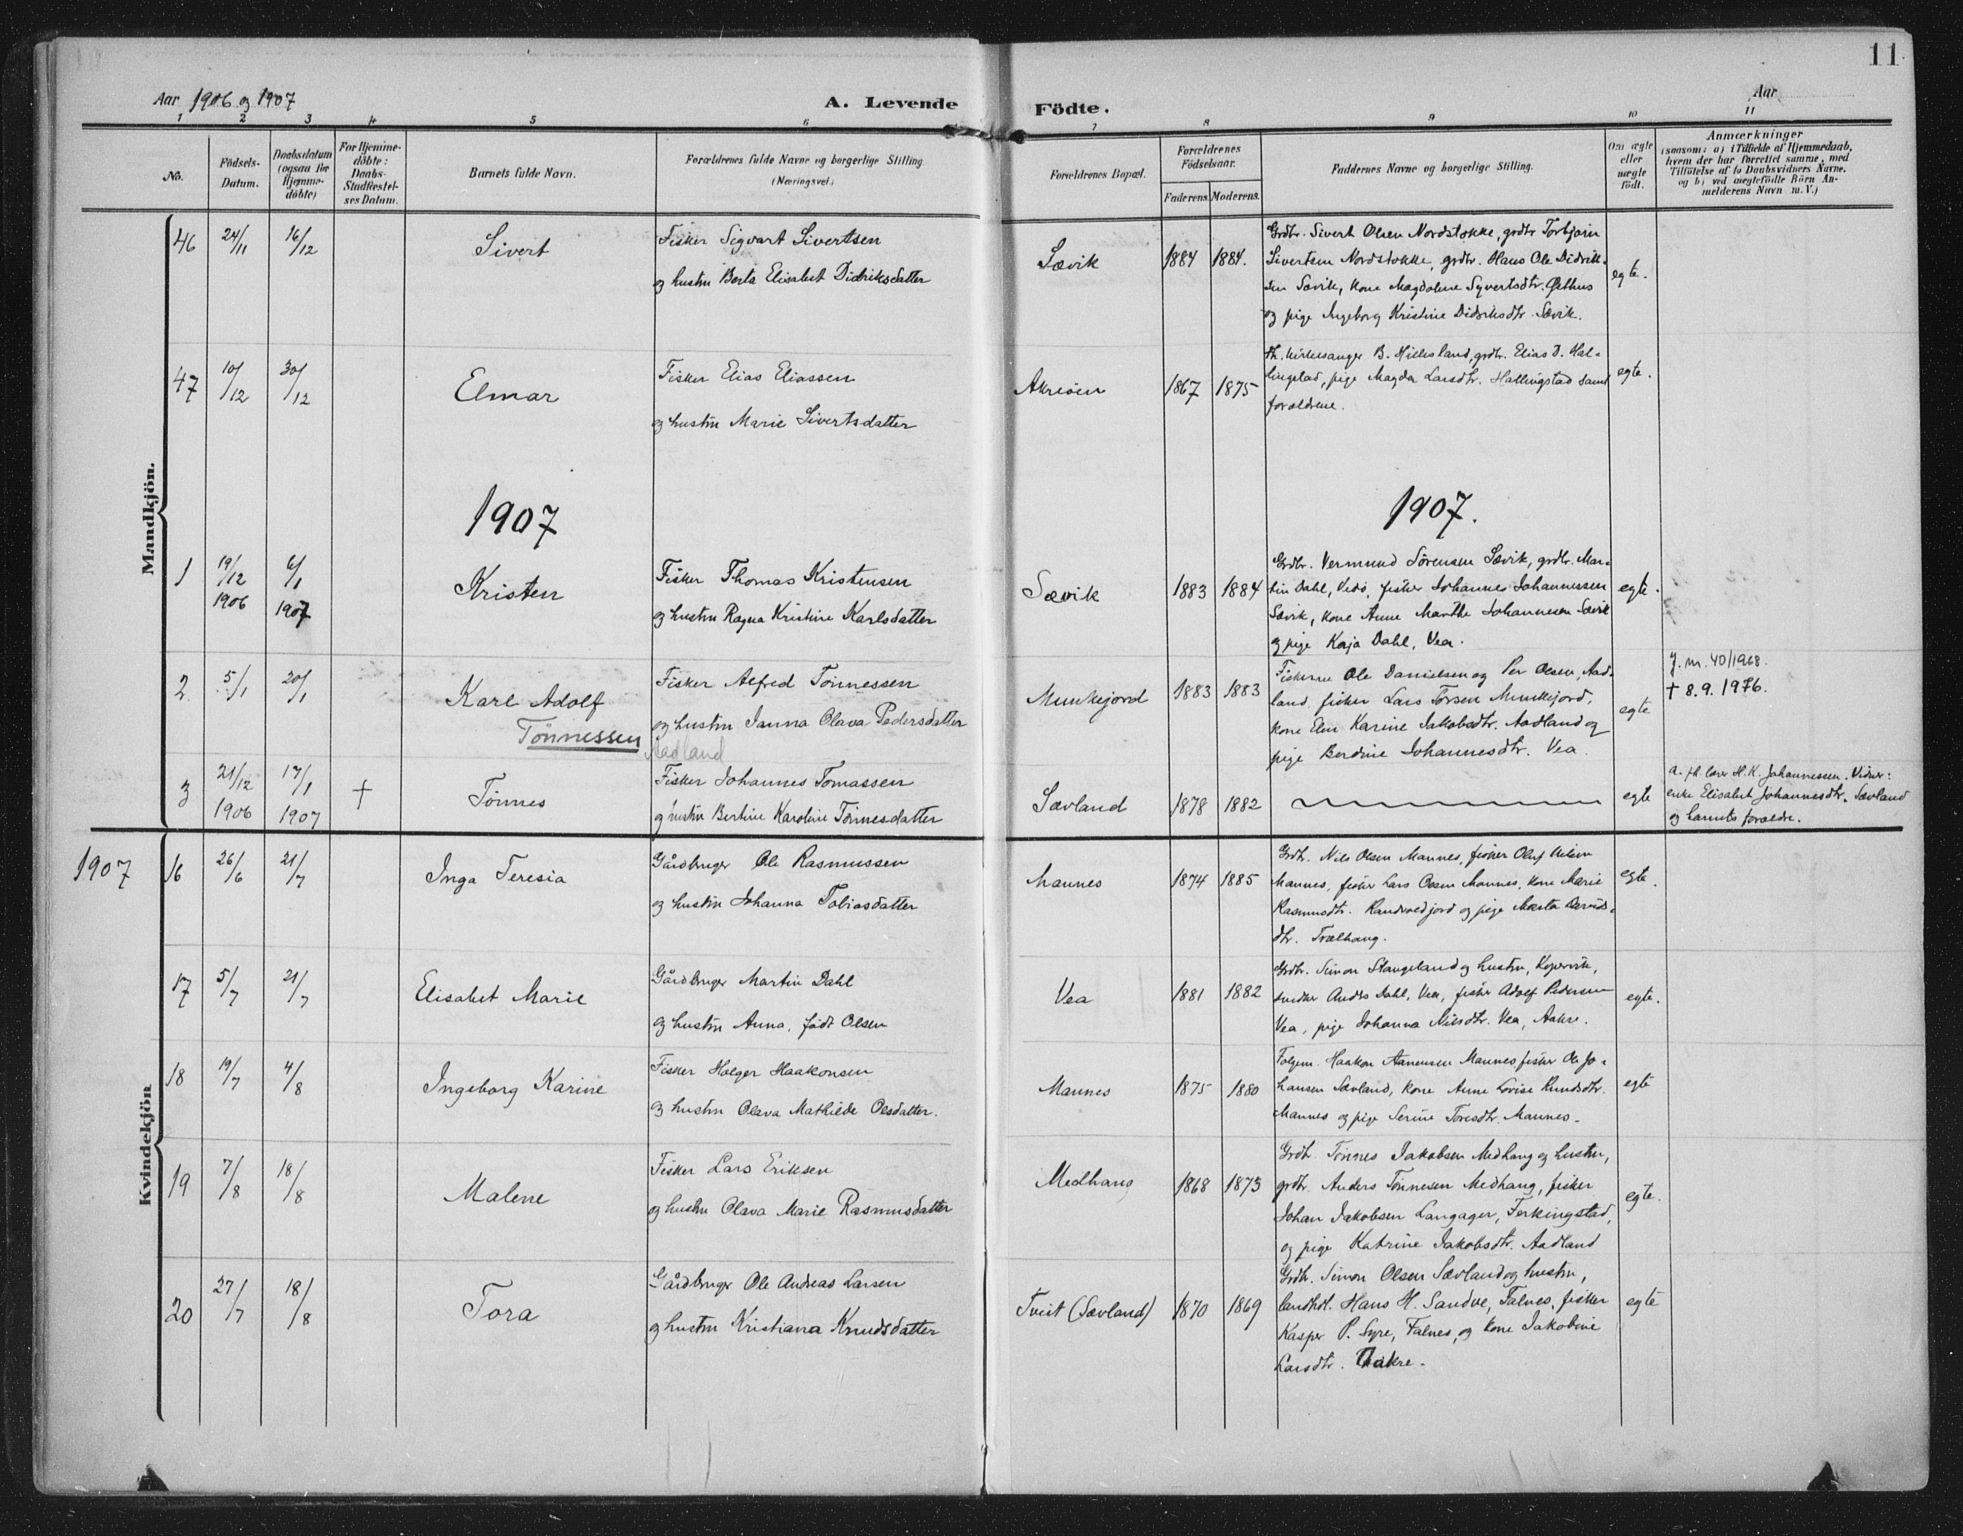 11
Aar 1906 og 1907
A. Levende Födte.
Aar
1 2 3 4 5 6 7 8 9 10 11
No.
Födsels-Datum.
Daabsdatum (ogsaa for Hjemme-döbte)
For Hjemme-döbte: Daabs-Stadfæstel-ses Datum.
Barnets fulde Navn.
Forældrenes fulde Navne og borgerlige Stilling
(Næringsvei.)
Forældrenes Bopæl.
Forældrenes Födselsaar.
Faderens. Moderens.
Faddernes Navne og borgerlige Stilling.
Om ægte eller uægte födt.
Anmærkninger
(saasom: a) i Tilfælde af Hjemmedaab,
hvem der har forrettet samme, med
Tilföielse af to Daabsvidners Navne,
og b) ved uægtefödte Börn An-
melderens Navn m. V.)
Mandkjön.
46 24/11 16/12 Sivert
Fisker Sigvart Sivertsen
og hustru Berta Elisabet Didriksdatter
Sævik 1884 1884.
Grdbr. Sivert Olsen Nordstokke, grdbr Torbjørn
Sivertsen Nordstokke, grdbr. Hans Ole Didrik-
sen Sævik, kone Magdalene Syvertsdtr. Østhus
og pige Ingeborg Kristine Didriksdtr. Sævik.
egte.
47 10/12 30/12 Elmar
Fisker Elias Eliassen
og hustru Marie Sivertsdatter
Akreøen 1867 1875
Fh. kirkesanger B. Hillesland, grdbr. Elias D. Hal-
lingstad, pige Magda Larsdtr. Hallingstad samt
forældrene.
egte.
1907
1907.
1 19/12 1906 6/1 1907 Kristen
Fisker Thomas Kristensen
og hustru Ragna Kristine Karlsdatter
Sævik 1883 1884
Grdbr. Vermund Sørensen Sævik, grdbr. Mar-
tin Dahl, Vedø, fisker Johannes Johannessen
Sævik, kone Anne Marthe Johannesen Sævik
og pige Kaja Dahl, Vea.
egte.
2 5/1 20/1 Karl Adolf
Tönnessen
Aadland
Fisker Alfred Tönnessen
og hustru Janna Olava Pedersdatter
Munkejord 1883 1883
Fiskerne Ole Danielsen og Per Olsen, Aad-
land, fisker Lars Torsen Munkejord,
kone Elen Karine Jakobsdtr. Aadland og
pige Berdine Johannesdtr. Vea.
egte
J. nr. 40/1968.
† 8.9.1976.
3 21/12 1906 17/1 1907 † Tönnes
Fisker Johannes Tomassen
og hustru Bertine Karoline Tönnesdatter
Sævland 1878 1882
egte
a. fh. lærer H. K. Johannessen. Vidner:
enke Elisabet Johannesdtr. Sævland
og barnets forældre.
1907
Kvindekjön
16 26/6 21/7 Inga Teresia
Gårdbruger Ole Rasmussen
og hustru Johanna Tobiasdatter
Mannes 1874 1885
Grdbr. Nils Olsen Mannes, fisker Oluf Nilsen
Mannes, fisker Lars Olsen Mannes, kone Marie
Rasmusdtr. Sandvedjord og pige Marta Davids-
dtr. Trælhaug.
egte.
17 5/7 21/7 Elisabet Marie
Gårdbruger Martin Dahl
og hustru Anna, født Olsen
Vea 1881 1882
Grdbr. Simon Stangeland og hustru, Kopervik,
snedker Anders Dahl, Vea, fisker Adolf Pedersen
Vea, pige Johanna Nilsdtr. Vea, Aakre.
egte.
18 19/7 4/8 Ingeborg Karine
Fisker Holger Haakonsen
og hustru Olava Mathilde Olsdatter.
Mannes 1875 1880
Folgem. Haakon Aanensen Mannes, fisker Ole Jo-
hansen Sævland, kone Anne Lovise Knudsdtr.
Mannes og pige Serine Toresdtr. Mannes.
egte
19 7/8 18/8 Malene
Fisker Lars Eriksen
og hustru Olava Marie Rasmusdatter
Medhaug 1868 1873
Grdbr. Tönnes Jakobsen Medhaug og hustru,
grdbr. Anders Tönnesen Medhaug, fisker
Johan Jakobsen Langager, Ferkingstad,
og pige Katrine Jakobsdtr. Aadland
egte.
20 27/7 18/8 Tora
Gårdbruger Ole Andreas Larsen
og hustru Kristiana Knudsdatter
Tveit (Sævland) 1870 1869
Grdbr. Simon Olsen Sævland og hustru,
landhdl. Hans H. Sandve, Falnes, fisker
Kasper P. Syre, Falnes, og kone Jakobine
Larsdtr. Aakre.
egte